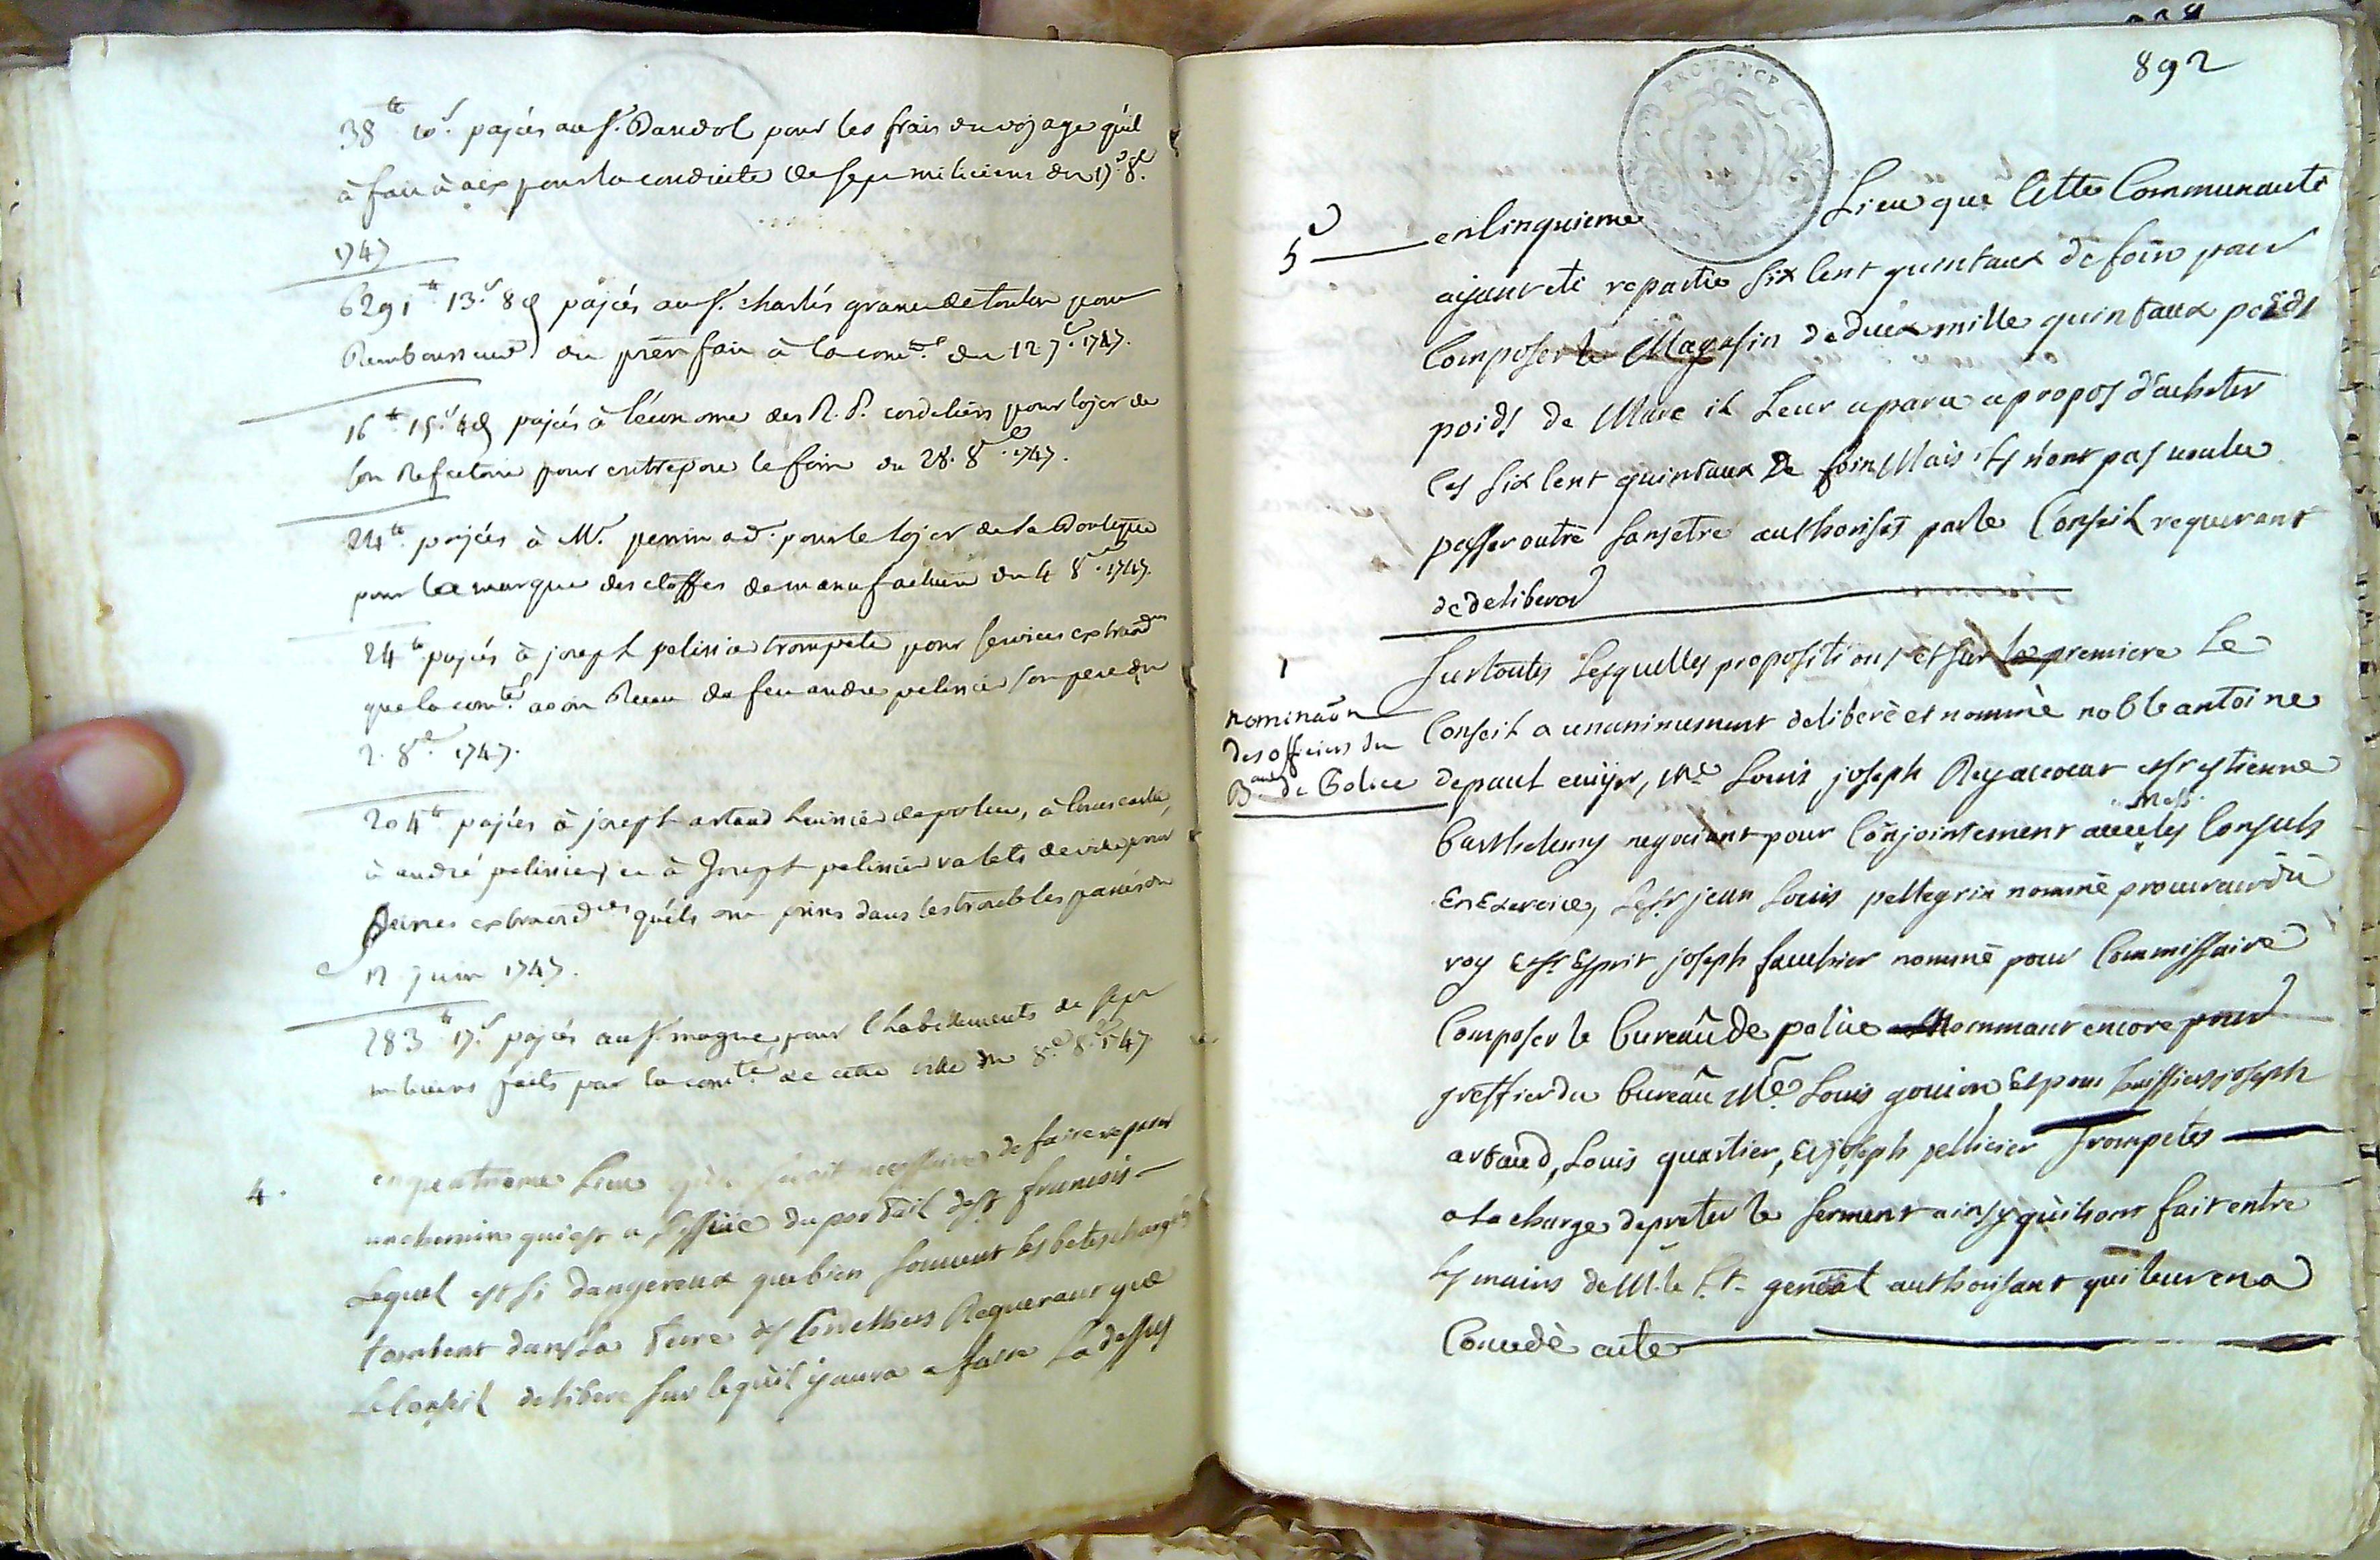 38 tt 10 s. payés au Sr. Dandol pour les frais du voyage qu'il
à fait à aix pour la conduite de sept miliciens du 17 8e.
1747
6291 tt 13 s 8 d payés au Sr. charles de toulon pour
Remboursement du fait à la comté. du 12 7e. 1747.
16 tt 15 s 4 d payés à l'économe des R. P. cordeliers pour loyer de
son Refectoire pour entrepose le foin du 28. 8e. 1747.
24 tt payés à Me. perrin ad. pour le loyer de la Boutique
pour la marque des etoffes de manufacture du 4 8e. 1747.
24 tt payés à joseph pelissier trompete pour services extraord
que la comté. a de feu andre pelissier son pere du
2. 8e. 1747.
204 tt payés à joseph artaud huissier de police, à
à andré pelissier, et à Joseph pelissier valets de ville pour
peines extraordres qu'ils ont prises dans les troubles
12 juin 1747.
283 tt 17 s payés au Sr. magne, pour l'habillements de sept
miliciens faits par la comté. de cette ville du 8e 8e 1747
4. en quatrieme Lieu necessaire de faire reparer
un chemin qui est a L'issüe du portail de St francois
Lequel est si dangereux que bien souvent les betes chargées
tombent dans La Terre des Cordelliers Requerant que
Le Conseil delibere sur le qu'il y aura a faire La dessus
892
PROVENCE
5 en Cinquieme Lieu que Cette Communauté
ayant eté repartie six Cent quintaux de foin pour
Composer le Magasin de deux mille quintaux poids
poids de Marc il Leur a paru a propos d'acheter
Ces six Cent quintaux de foin Mais ils n'ont pas voulu
passer outre sans etre authorisés par le Conseil requerant
de deliberer
1 Sur toutes Lesquelles propositions et sur la premiere Le
nominaôn
des officiers du
Bau de Police
Conseil a unanimement deliberé et nommé noble antoine
depaul ecuyer, Me Louis joseph Rey avocat et Sr etienne
Barthelemy negociant pour Conjointement avec les Mess. Consuls
En Exercice, Le Sr jean Louis pellegrin nommé procureur du
roy et Sr Esprit joseph nommé pour Commissaire
Composer le bureau de police Nommant encore pour
greffier du bureau Me. Louis gouion Et pour huissiers joseph
artaud, Louis quartier, Et joseph pellicier Trompetes
a La charge de preter le serment ainsy qu'ils ont fait entre
les mains de M. le Lt. general authorisant qui leur en a
Concedé acte